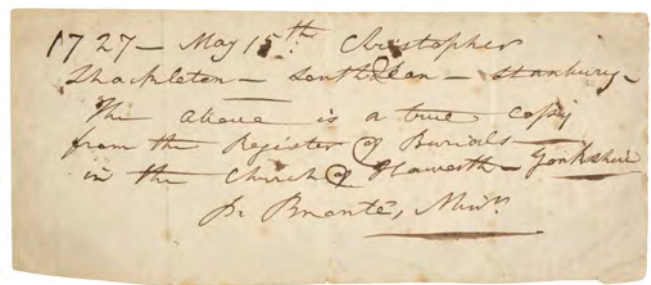 1727 — May 15th: Christopher
Shackleton — South Dean — Stanbury —
The above is a true copy
from the Register of Burials
in the Church of Haworth — Yorkshire
P. Brontë, Minr.